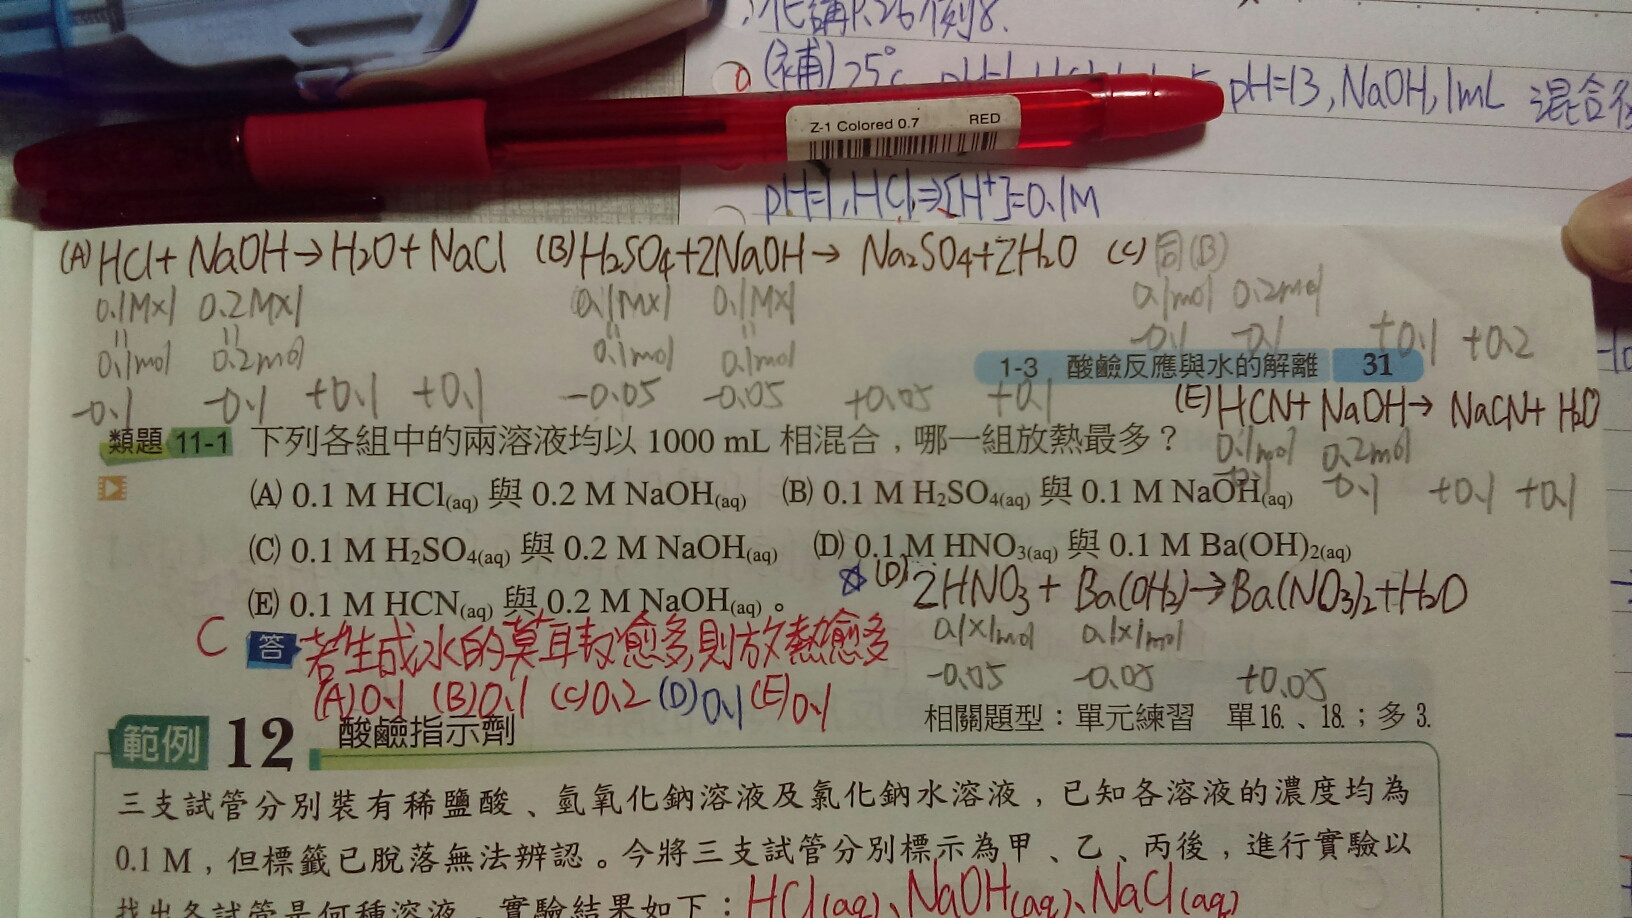 化講P.26例8.
(補)25°C pH=13, NaOH, 1mL 混合後
Z-1 Colored 0.7 RED
pH=1, HCl⇒[H⁺]=0.1M
(A) HCl+NaOH→H₂O+NaCl (B) H₂SO₄+2NaOH→ Na₂SO₄+2H₂O (C) 同(B)
0.1M×1 0.2M×1 0.1M×1 0.1M×1 0.1mol 0.2mol
0.1mol 0.2mol 0.1mol 0.1mol -0.1 -0.1 +0.1 +0.2
1-3 酸鹼反應與水的解離 31
-0.1 -0.1 +0.1 +0.1 -0.05 -0.05 +0.05 +0.1
(E) HCN+NaOH→ NaCN+H₂O
0.1mol 0.2mol
-0.1 -0.1 +0.1 +0.1
類題 11-1 下列各組中的兩溶液均以 1000 mL 相混合，哪一組放熱最多？
(A) 0.1 M HCl(aq) 與 0.2 M NaOH(aq) (B) 0.1 M H₂SO₄(aq) 與 0.1 M NaOH(aq)
(C) 0.1 M H₂SO₄(aq) 與 0.2 M NaOH(aq) (D) 0.1 M HNO₃(aq) 與 0.1 M Ba(OH)₂(aq)
(E) 0.1 M HCN(aq) 與 0.2 M NaOH(aq)。
☆(D) 2HNO₃+Ba(OH₂)→Ba(NO₃)₂+H₂O
0.1×1mol 0.1×1mol
-0.05 -0.05 +0.05
C 答 若生成水的莫耳數愈多,則放熱愈多
(A)0.1 (B)0.1 (C)0.2 (D)0.1 (E)0.1
相關題型：單元練習 單16.、18.；多3.
範例 12 酸鹼指示劑
三支試管分別裝有稀鹽酸、氫氧化鈉溶液及氯化鈉水溶液，已知各溶液的濃度均為
0.1 M，但標籤已脫落無法辨認。今將三支試管分別標示為甲、乙、丙後，進行實驗以
找出各試管是何種溶液，實驗結果如下：
HCl(aq)、NaOH(aq)、NaCl(aq)